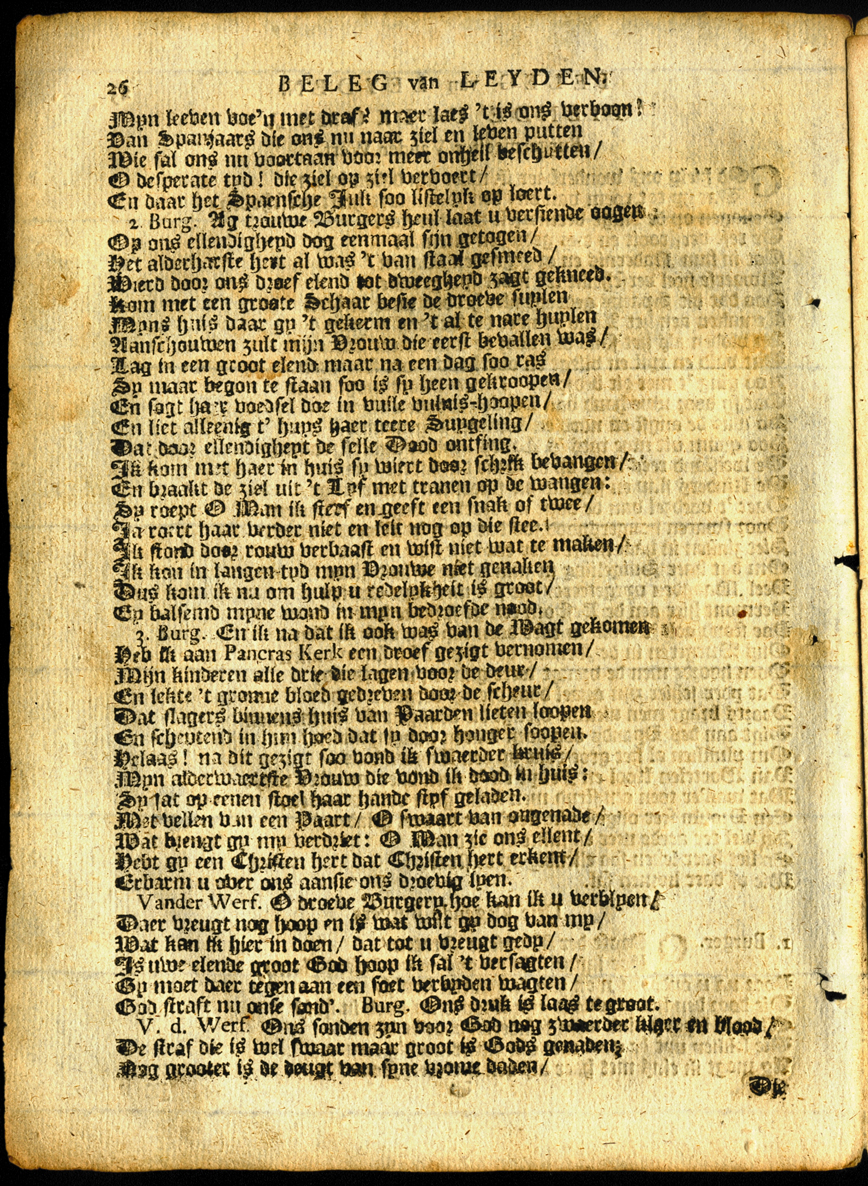 26 BELEG van LEYDEN.
Myn leeven voe'n met draf? maer laes 't is ons verboon!
Dan Spanjaars die ons nu naar ziel en leven putten
Wie sal ons nu voortaan voor meer onheil beschutten/
O desperate tyd! die ziel op ziel vervoert/
En daar het Spaensche Juk soo listelyk op loert.
2. Burg. Ag trouwe Burgers heul laat u versiende oogen
Op ons ellendigheyd dog eenmaal sijn getogen/
Het alderharste hert al was 't van staal gesmeed/
Wierd door ons droef elend tot dweegheyd zagt gekneed.
Kom met een groote Schaar besie de droeve suylen
Myns huis daar gy 't gekerm en 't al te nare huylen
Aanschouwen zult mijn Vrouw die eerst bevallen was/
Lag in een groot elend maar na een dag soo ras
Sy maar begon te staan soo is sy heen gekroopen/
En sogt haer voedsel doe in vuile vulnis-hoopen/
En liet alleenig t' huys haer teere Suygeling/
Dat door ellendigheyt de felle Dood ontfing.
Ik kom met haer in huis sy wiert door schrik bevangen/
En braakt de ziel uit 't Lyf met tranen op de wangen:
Sy roept O Man ik sterf en geeft een snak of twee/
Ja roert haar verder niet en leit nog op die stee.
Ik stond door rouw verbaast en wist niet wat te maken/
Ik kon in langen tyd myn Vrouwe niet genaken
Dus kom ik nu om hulp u redelykheit is groot/
Ey balsemd myne wond in myn bedroefde nood.
3. Burg. En ik na dat ik ook was van de Wagt gekomen
Heb ik aan Pancras Kerk een droef gezigt vernomen/
Mijn kinderen alle drie die lagen voor de deur/
En lekte 't gronne bloed gedreven door de scheur/
Dat slagers binnens huis van Paarden lieten loopen
En scheptend in hun hoed dat sy door honger soopen.
Helaas! na dit gezigt soo vond ik swaerder kruis/
Myn alderwaertste Vrouw die vond ik dood in huis:
Sy sat op eenen stoel haar hande styf geladen.
Met vellen van een Paart/ O swaart van ongenade/
Wat brengt gy my verdriet: O Man zie ons ellent/
Hebt gy een Christen hert dat Christen hert erkent/
Erbarm u over ons aansie ons droevig lyen.
Vander Werf. O droeve Burgery hoe kan ik u verblyen/
Daer vreugt nog hoop en is wat wilt gy dog van my/
Wat kan ik hier in doen/ dat tot u vreugt gedy/
Is uwe elende groot God hoop ik sal 't versagten/
Gy moet daer tegen aan een soet verbyden wagten/
God straft nu onse sond'. Burg. Ons druk is laas te groot.
V. d. Werf. Ons sonden zyn voor God nog zwaerder klaer en bloed/
De straf die is wel swaar maar groot is Gods genaden;
Nog grooter is de deugt van syne vrome daden/
Die